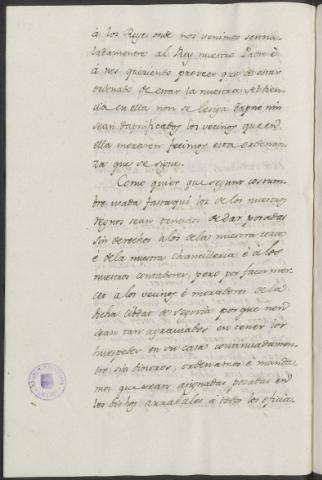 à los Reyes onde nos venimos sennaladamente al Rey nuestro Padre è
à nos queriendo proveer que do estar
ordenado de estar la nuestra Abdien-
cia en ella non se lesiga dapno nin
sean dapnificados los vecinos que en
ella moraren fecimos esta ordenan-
za que se sigue.
Como quier que segunt costum-
bre usada fasta aqui los de los nuestros
regnos sean tenudos de dar posadas
sin derechos alos dela nuestra casa
è dela nuestra chancilleria è à los
nuestros contadores, pero por facer mer-
cet a los vecinos è moradores de la
dicha Cibdat de Segovia por que non
sean tan agraviados en tener los
huespedes en su casa continuadamen-
te sin dineros, ordenamos è manda-
mos que sean asignadas posadas en
los dichos arrabales à todos los oficia-